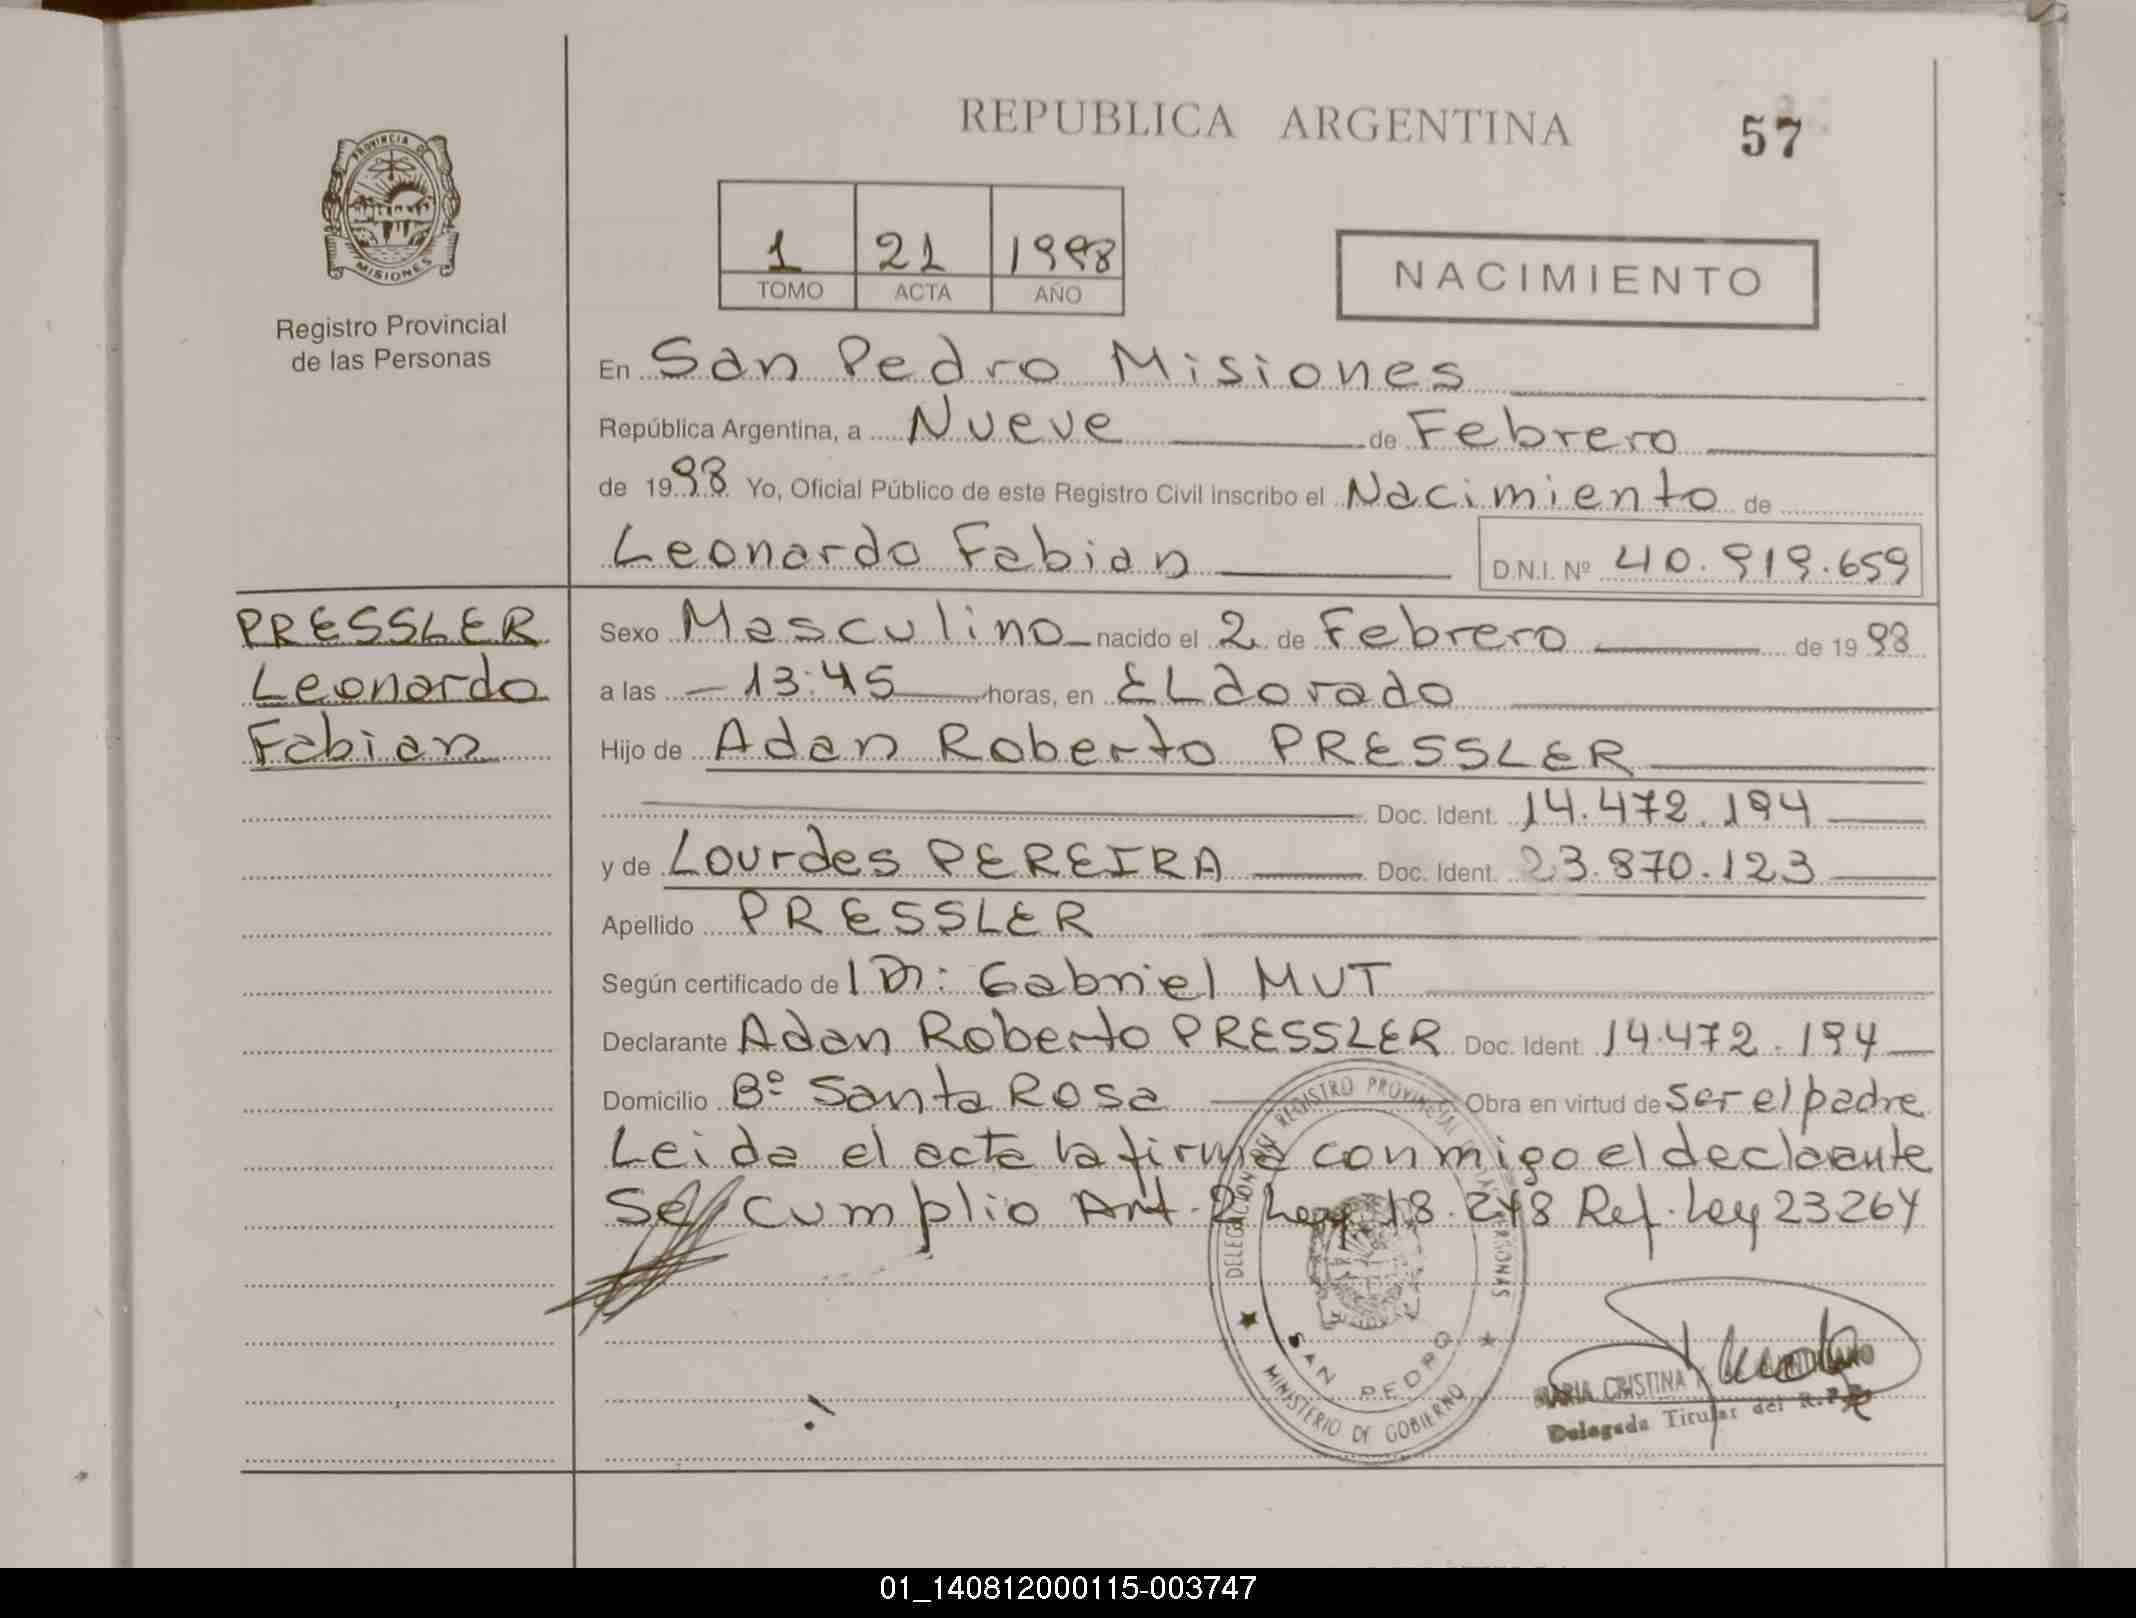 REPUBLICA ARGENTINA
57
PROVINCIA DE MISIONES
Registro Provincial
de las Personas
1 21 1998
TOMO ACTA AÑO
NACIMIENTO
En San Pedro Misiones
República Argentina, a Nueve de Febrero
de 1998 Yo, Oficial Público de este Registro Civil inscribo el Nacimiento de
Leonardo Fabian D.N.I. Nº 40.919.659
PRESSLER
Leonardo
Fabian
Sexo Masculino nacido el 2 de Febrero de 1998
a las 13:45 horas, en ELdorado
Hijo de Adan Roberto PRESSLER
Doc. Ident. 14.472.194
y de Lourdes PEREIRA Doc. Ident. 23.870.123
Apellido PRESSLER
Según certificado de l Dr: Gabriel MUT
Declarante Adan Roberto PRESSLER Doc. Ident. 14.472.194
Domicilio Bº Santa Rosa Obra en virtud de ser el padre
Leida el acta la firma conmigo el declarante
Se cumplio Art. 2 Ley 18.248 Ref. Ley 23264
DELEGACION DEL REGISTRO PROVINCIAL DE LAS PERSONAS
SAN PEDRO
MINISTERIO DE GOBIERNO
MARIA CRISTINA
Delegada Titular del R.P.P.
01_140812000115-003747